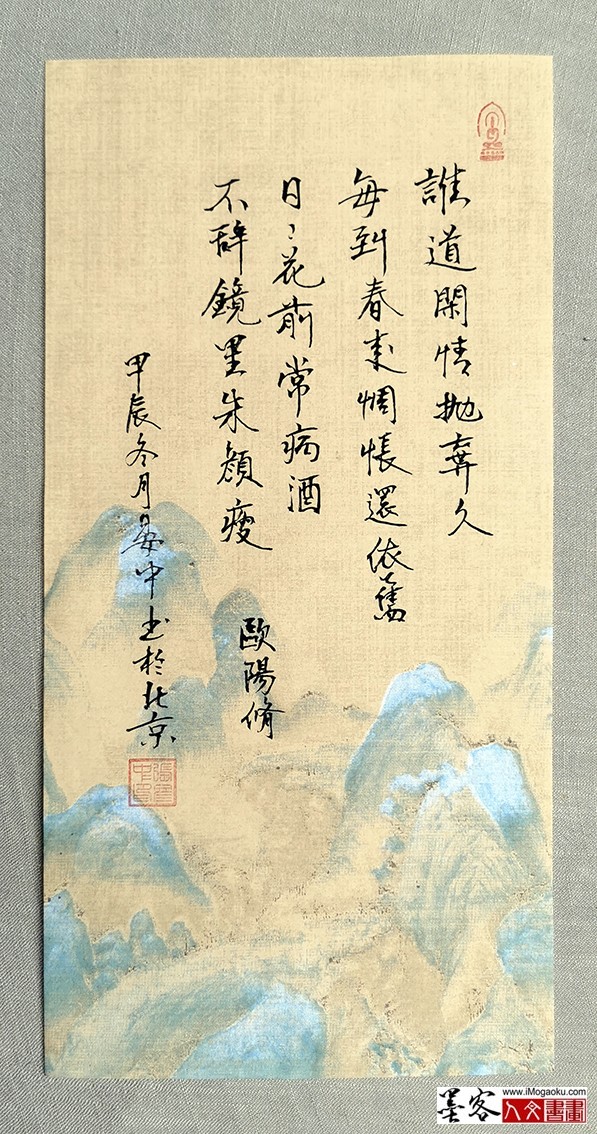 誰道閑情抛棄久
每到春來惆悵還依舊
日〻花前常病酒
不辭鏡里朱顏瘦
歐陽脩
甲辰冬月晏中书於北京
墨客
www.iMogaoku.com
人文書畫